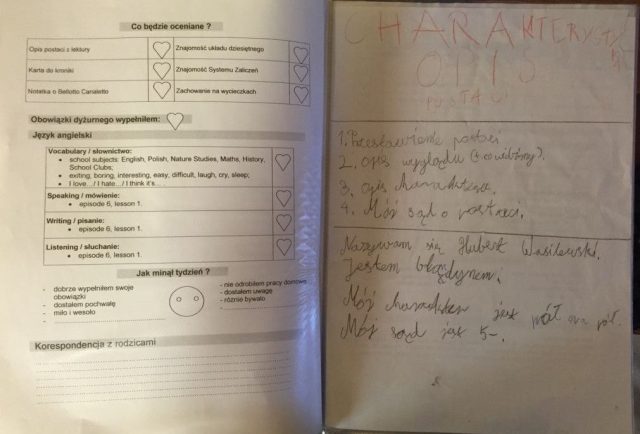 Co będzie oceniane ?
Opis postaci z lektury
Znajomość układu dziesiętnego
Karta do kroniki
Znajomość Systemu Zaliczeń
Notatka o Bellotto Canaletto
Zachowanie na wycieczkach
Obowiązki dyżurnego wypełniłem:
Język angielski
Vocabulary / słownictwo:
• school subjects: English, Polish, Nature Studies, Maths, History, School Clubs;
• exiting, boring, interesting, easy, difficult, laugh, cry, sleep;
• I love.../ I hate.../ I think it's...
Speaking / mówienie:
• episode 6, lesson 1.
Writing / pisanie:
• episode 6, lesson 1.
Listening / słuchanie:
• episode 6, lesson 1.
Jak minął tydzień ?
- dobrze wypełniłem swoje obowiązki
- dostałem pochwałę
- miło i wesoło
- nie odrobiłem pracy domowej
- dostałem uwagę
- różnie bywało
Korespondencja z rodzicami
OPIS
POSTACI
1. Przestawienie postaci
2. opis wyglądu (co widzimy?)
3. opis charakteru.
4. Mój sąd o postaci.
Nazywam się Hubert Wasilewski.
Jestem blądynem.
Mój charakter jest pół na pół.
Mój sąd jest 5-.